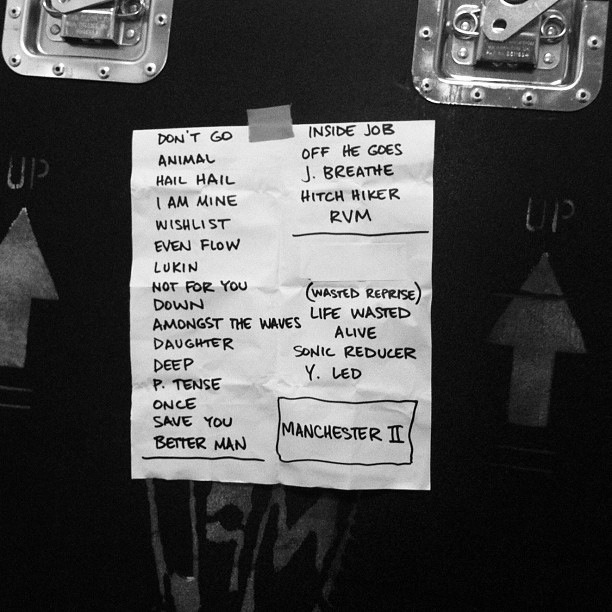 DON'T GO
ANIMAL
HAIL HAIL
I AM MINE
WISHLIST
EVEN FLOW
LUKIN
NOT FOR YOU
DOWN
AMONGST THE WAVES
DAUGHTER
DEEP
P. TENSE
ONCE
SAVE YOU
BETTER MAN
INSIDE JOB
OFF HE GOES
J. BREATHE
HITCH HIKER
RVM
(WASTED REPRISE)
LIFE WASTED
ALIVE
SONIC REDUCER
Y. LED
MANCHESTER II
UP
UP